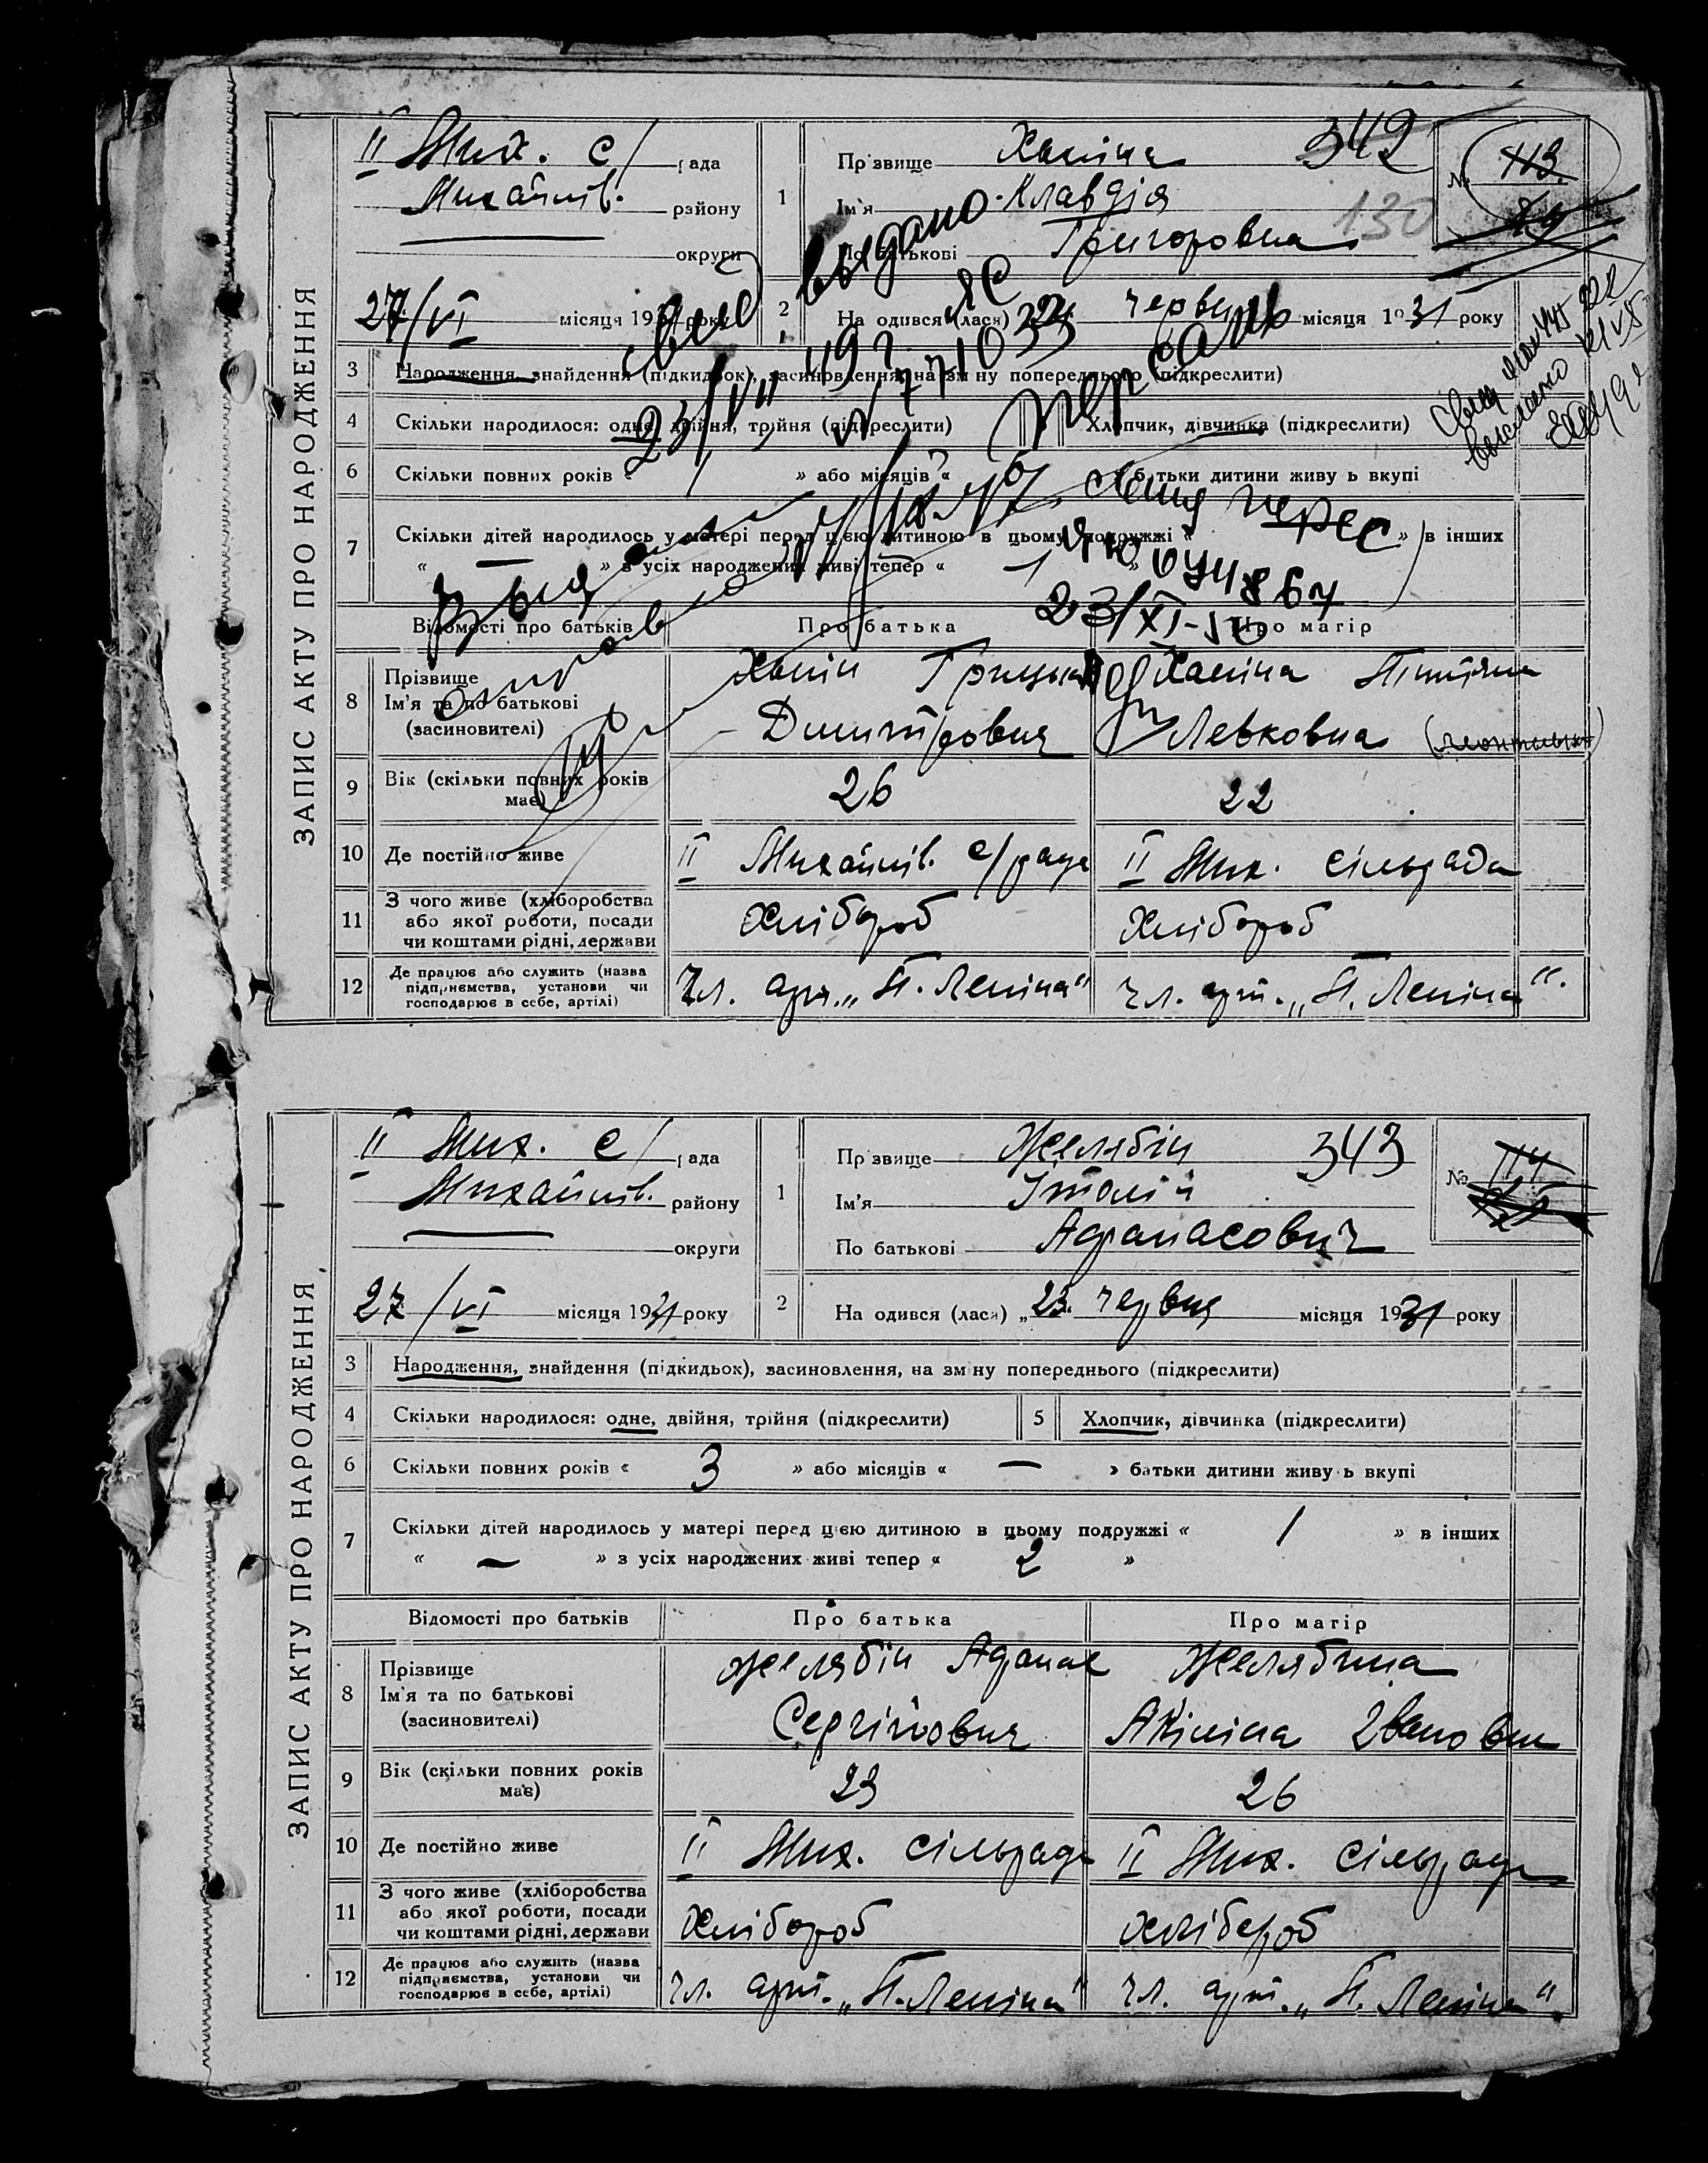 ЗАПИС АКТУ ПРО НАРОДЖЕННЯ
II Мих. с/ рада
Михайлів. району
округи
27/VI місяця 1931 року
1 Прізвище Ханіна 342
Ім'я Клавдія 130
По батькові Григоровна
№ 113
2 На одився (лася) червня місяця 1931 року
3 Народження, знайдення (підкидьок), засиновлення, на зміну попереднього (підкреслити)
4 Скільки народилося: одне, двійня, трійня (підкреслити)
Хлопчик, дівчинка (підкреслити)
6 Скільки повних років « » або місяців « батьки дитини живуть вкупі
7 Скільки дітей народилось у матері перед цією дитиною в цьому подружжі « » в інших
« — » з усіх народжених живі тепер « 1 »
выдано
23/VII 49 г
23/XI-50
Відомості про батьків Про батька Про матір
8 Прізвище
Ім'я та по батькові
(засиновителі)
Ханін Грицько
Дмитрович
Ханіна
Левковна
9 Вік (скільки повних років має) 26 22
10 Де постійно живе II Михайлів. с/рада II Мих. сільрада
11 З чого живе (хліборобства
або якої роботи, посади
чи коштами рідні, держави
Хлібороб Хлібороб
12 Де працює або служить (назва
підприємства, установи чи
господарює в себе, артілі)
Чл. арт. „П. Леніна" Чл. арт. „П. Леніна".
ЗАПИС АКТУ ПРО НАРОДЖЕННЯ
II Мих. с/ рада
Михайлів. району
округи
27/VI місяця 1931 року
1 Прізвище Желябін 343
Ім'я Італій
По батькові Афанасович
№ 114
2 На одився (лася) „23. червня місяця 1931 року
3 Народження, знайдення (підкидьок), засиновлення, на зміну попереднього (підкреслити)
4 Скільки народилося: одне, двійня, трійня (підкреслити) 5 Хлопчик, дівчинка (підкреслити)
6 Скільки повних років « 3 » або місяців « — » батьки дитини живуть вкупі
7 Скільки дітей народилось у матері перед цією дитиною в цьому подружжі « 1 » в інших
« — » з усіх народжених живі тепер « 2 »
Відомості про батьків Про батька Про матір
8 Прізвище
Ім'я та по батькові
(засиновителі)
Желябін Афанас
Сергійович
Желябина
Акіліна Івановна
9 Вік (скільки повних років має) 23 26
10 Де постійно живе II Мих. сільрада II Мих. сільрада
11 З чого живе (хліборобства
або якої роботи, посади
чи коштами рідні, держави
Хлібороб хлібороб
12 Де працює або служить (назва
підприємства, установи чи
господарює в себе, артілі)
чл. арт. „П. Леніна" чл. арт. „П. Леніна".